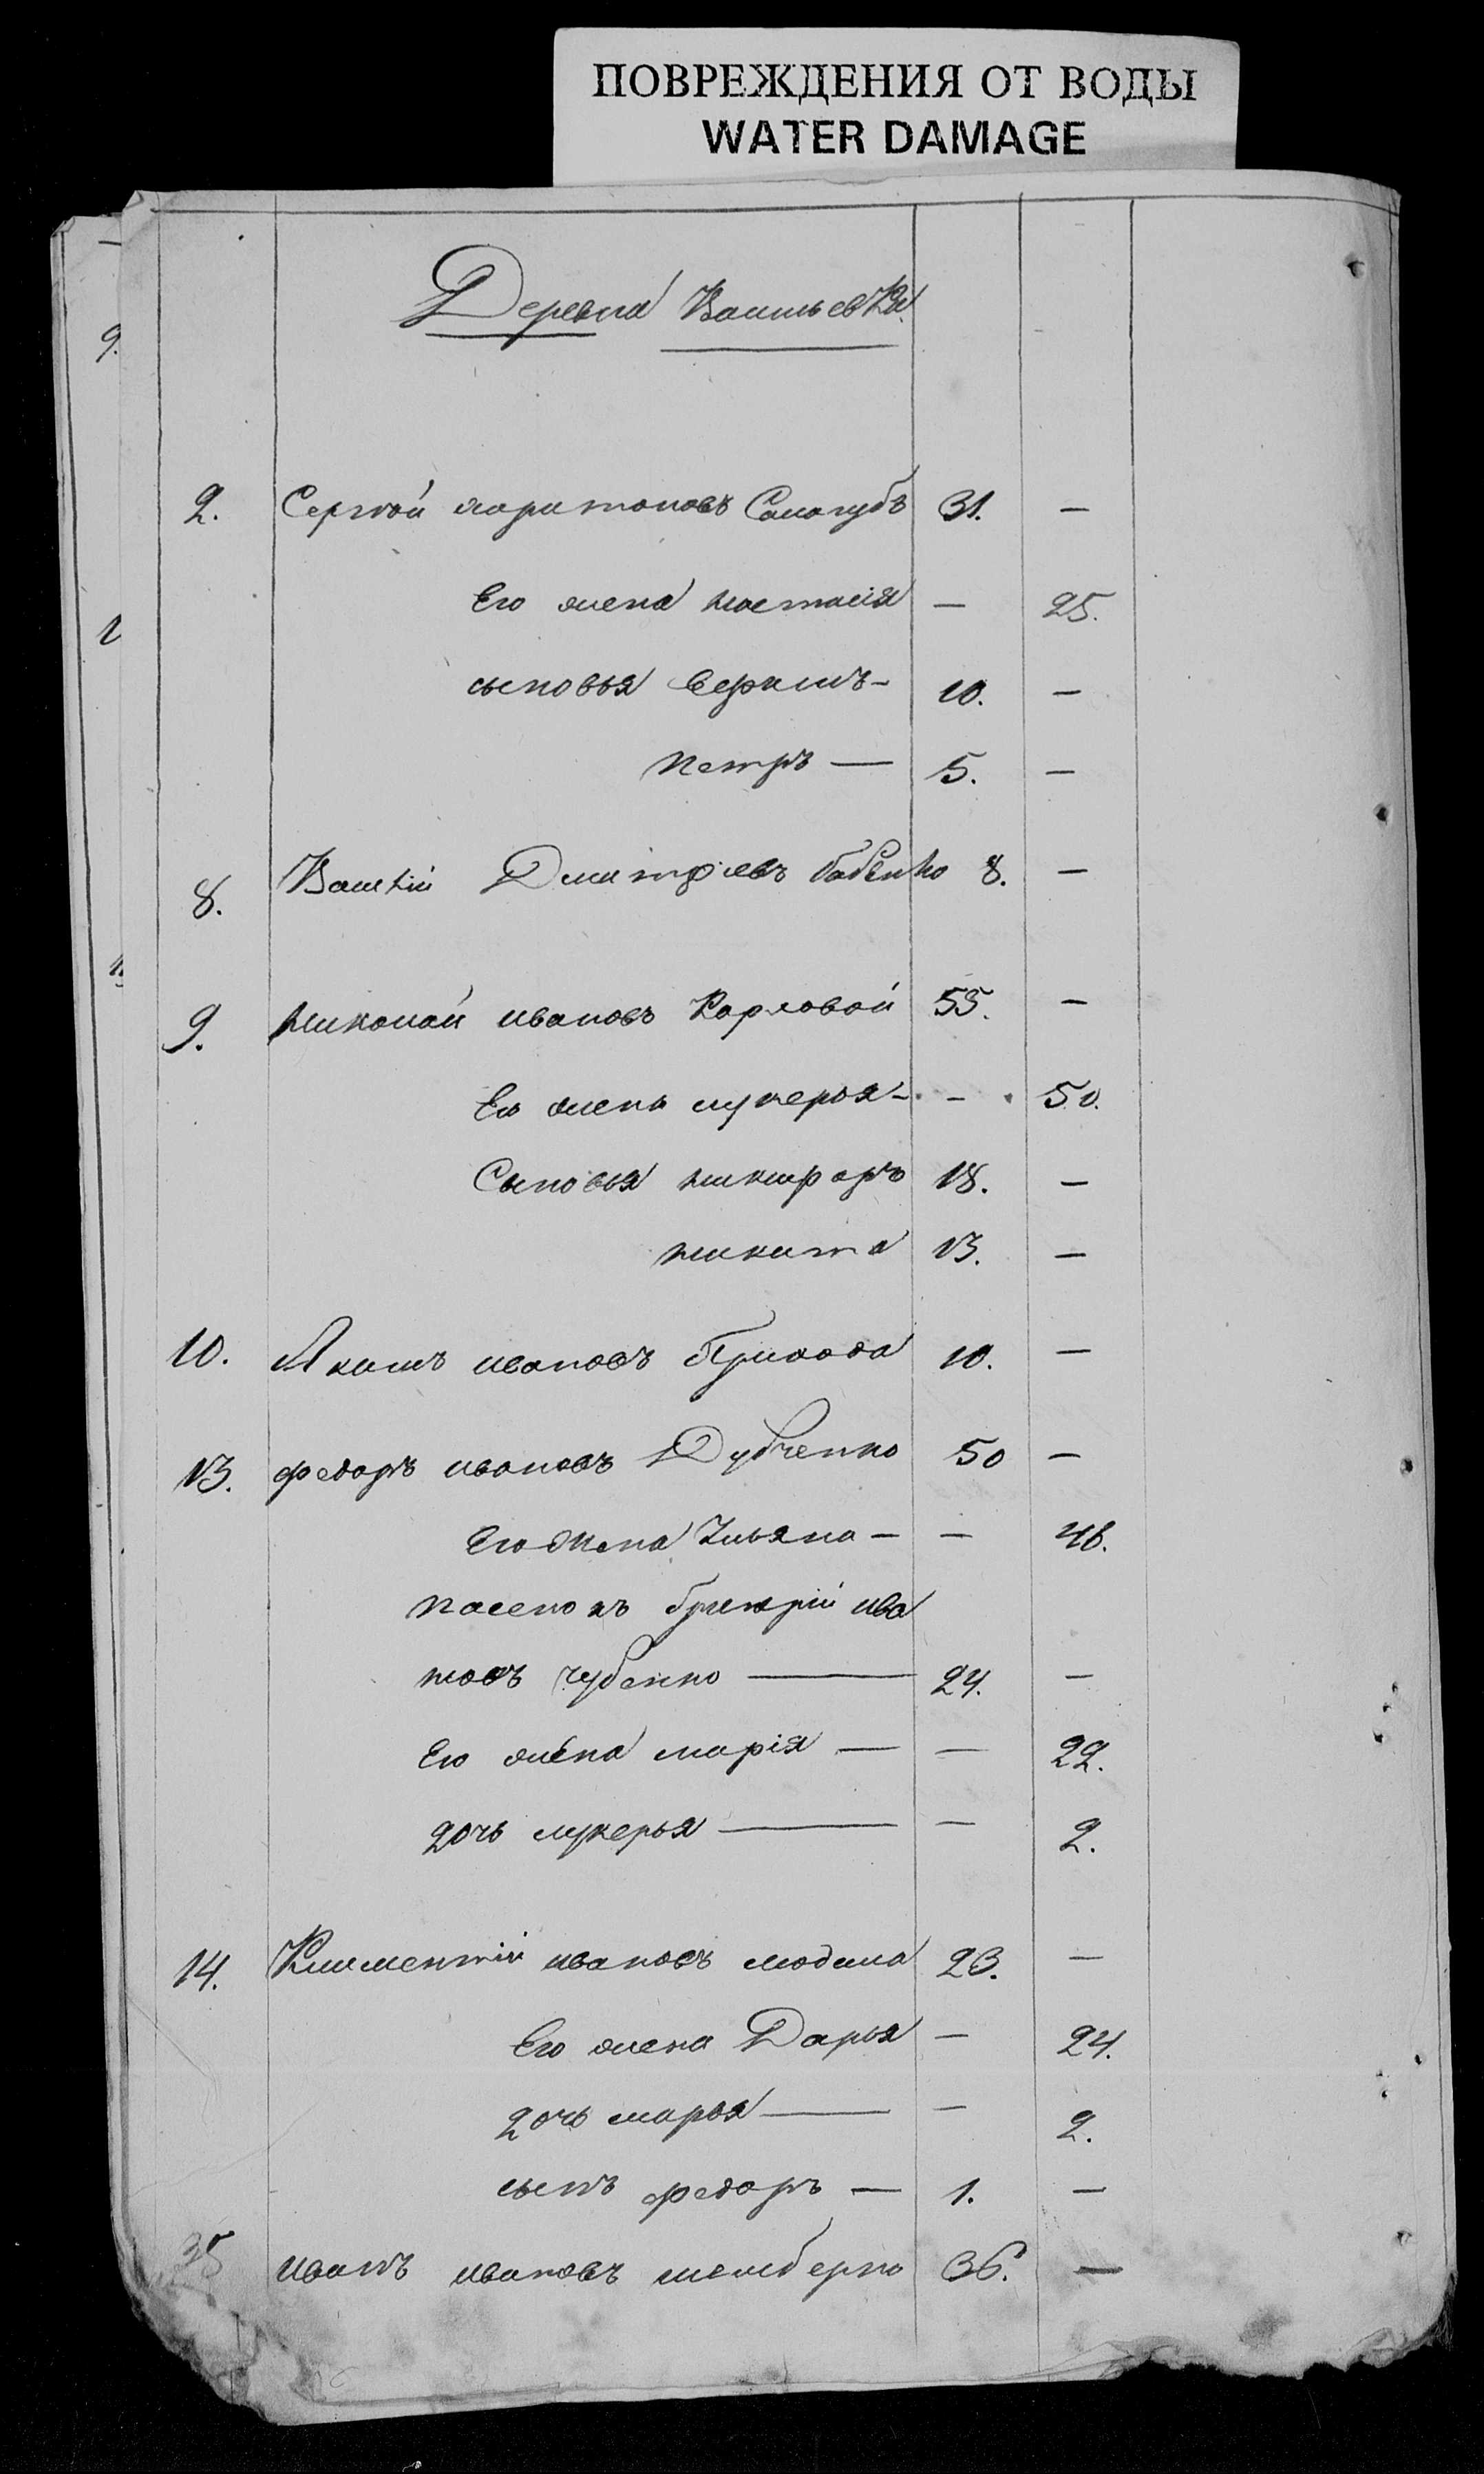 ПОВРЕЖДЕНИЯ ОТ ВОДЫ
WATER DAMAGE
Деревня Васильевка
2. Сергѣй харитоновъ Сологубъ 31. —
Его жена настасія — 25.
сыновья Серапимъ - 10. —
петръ — 5. —
8. Василій Дмитріевъ бабенко 8. —
9. николай ивановъ Карловой 55. —
Его жена лукерья - - 50.
Сыновья никифоръ 18. —
никита 13. —
10. Якимъ ивановъ Приходa 10. —
13. федоръ ивановъ Дубченко 50 —
Его жена Ульяна — — 46.
пасенокъ григорій ива
новъ чубенко — 24. —
Его жена марія — — 22.
дочь лукерья — — 2.
14. Климентій ивановъ 23. —
Его жена Дарья — 24.
дочь марья — — 2.
сынъ федоръ — 1. —
35 иванъ ивановъ 36. —
9.